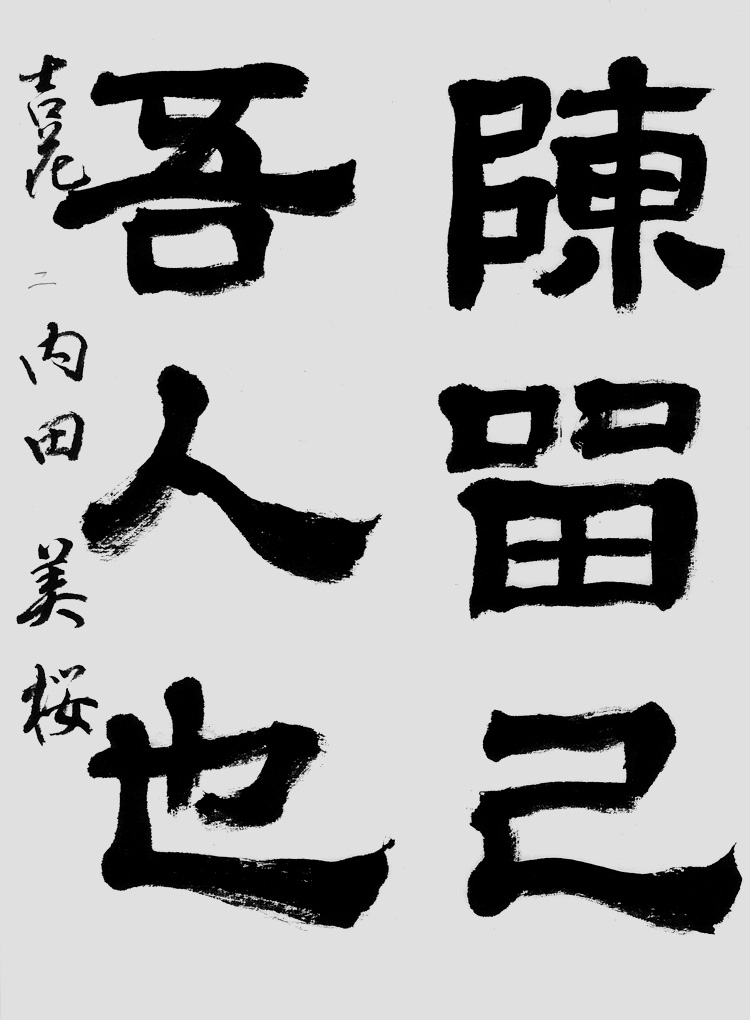 陳㽞己
吾人也
吉花 二 内田 美桜